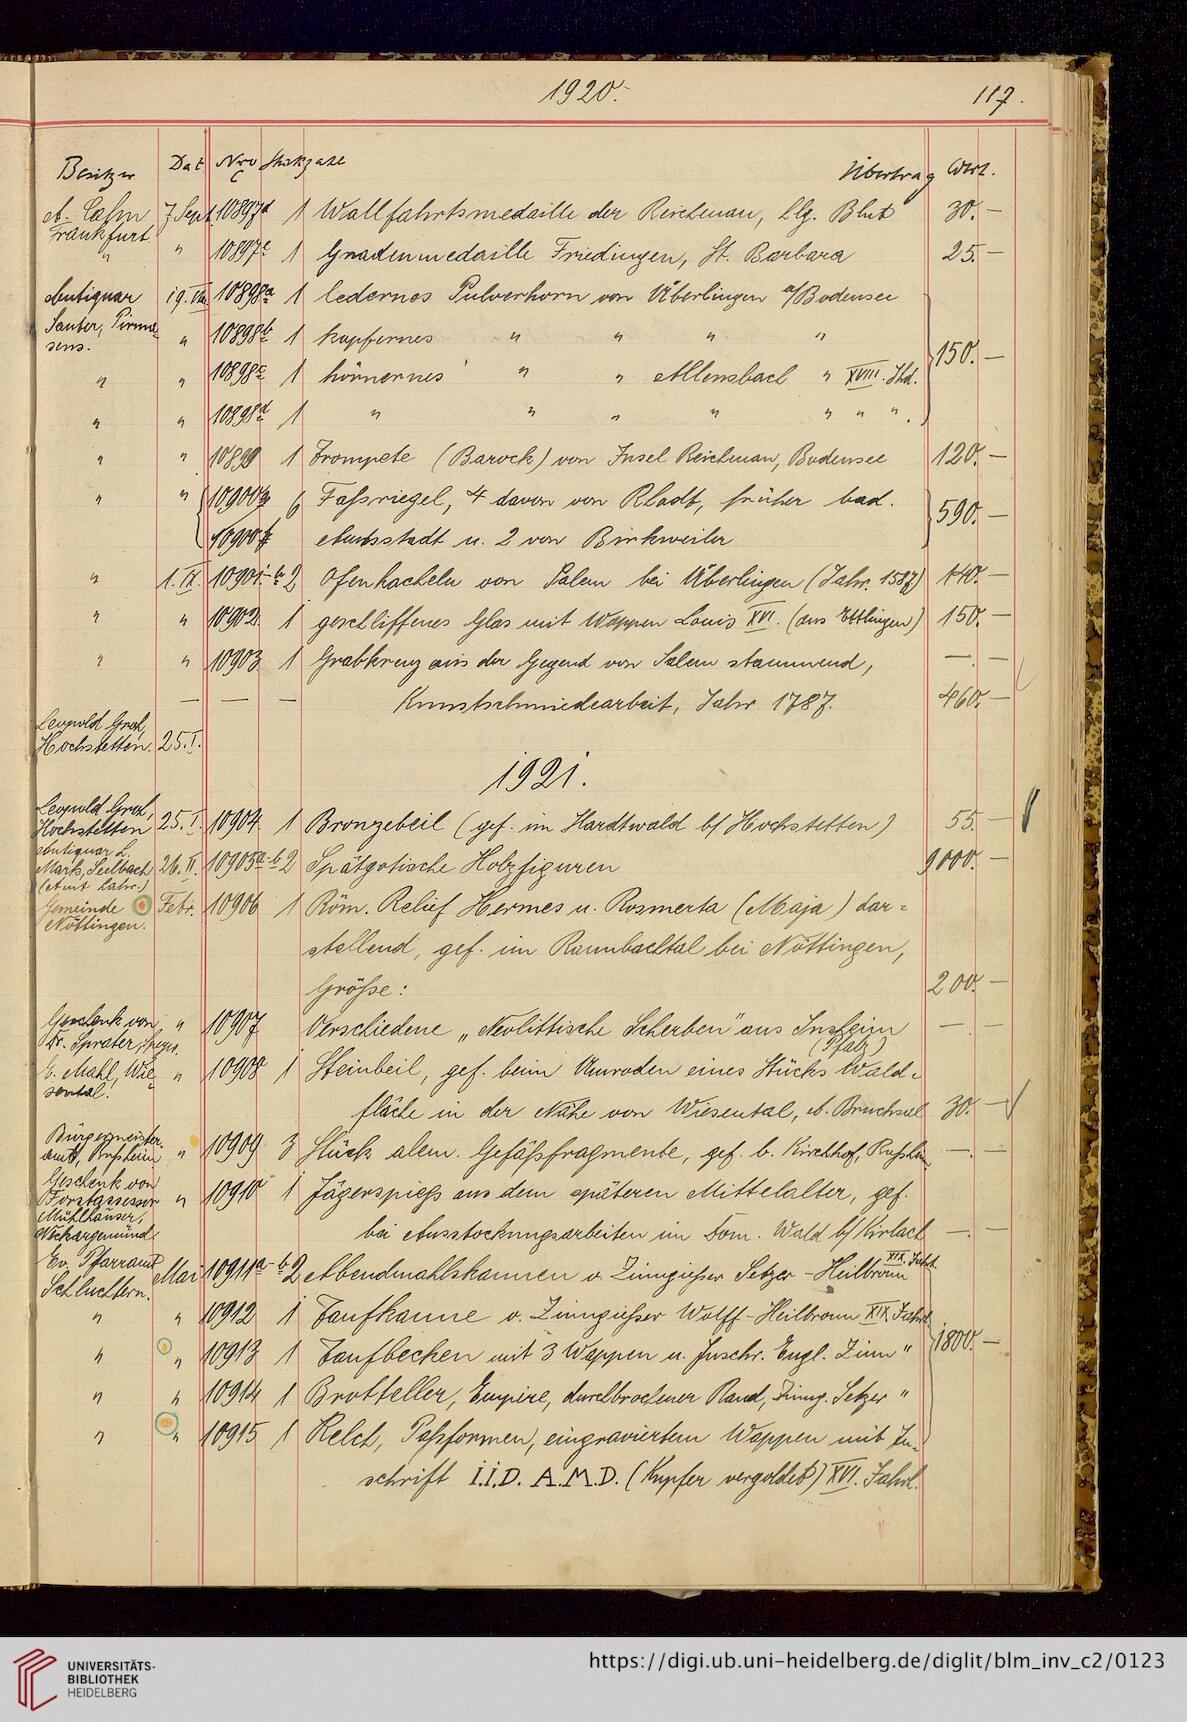 1920.
117.
Besitzer Dat Nro Stückzahl Übertrag Wert.
A. Cahn Frankfurt 7. Sept. 10897d 1 Wallfahrtsmedaille der Reichenau, Hlg. Blut 30.—
" " 10897e 1 Gnadenmedaille Friedingen, St. Barbara 25.—
Antiquar 19. VIII. 10898a 1 ledernes Pulverhorn von Überlingen a/Bodensee
Sauter, Pirmasens. " 10898b 1 kupfernes " " " " 150.—
" " 10898c 1 hörnernes " " Allensbach " XVIII. Jhd.
" " 10898d 1 " " " " " " ".
" " 10899 1 Trompete (Barock) von Insel Reichenau, Bodensee 120.—
" " 10900a 6 Faßriegel, 4 davon von Rhodt, früher bad.
10900f Amtsstadt u. 2 von Birkweiler 590.—
" 1. IX. 10901a-b 2 Ofenkacheln von Salem bei Überlingen (Jahr. 1587) 140.—
" " 10902 1 geschliffenes Glas mit Wappen Louis XVI. (aus Ettlingen) 150.—
" " 10903 1 Grabkreuz aus der Gegend von Salem stammend, —.—
— — — Kunstschmiedearbeit, Jahr 1787. 460.—
Leopold Grol, Hochstetten. 25. I.
1921.
Leopold Grol, Hochstetten 25. I. 10904 1 Bronzebeil (gef. im Hardtwald b/ Hochstetten) 55.—
Antiquar L. Marx, Seelbach (Amt Lahr.) 26. II. 10905a-b 2 Spätgotische Holzfiguren 9000.—
Gemeinde Nöttingen. Febr. 10906 1 Röm. Relief Hermes u. Rosmerta (Maja) dar=
stellend, gef. im Rannbachtal bei Nöttingen,
Größe: 200.—
Geschenk von Dr. Sprater, Speyer. " 10907 Verschiedene „Neolittische Scherben" aus Insheim (Pfalz) —.—
b. Mahl, Wiesental. " 10908 1 Steinbeil, gef. beim Umroden eines Stücks Wald=
fläche in der Nähe von Wiesental, A. Bruchsal 30.—
Bürgermeisteramt, Rußheim " 10909 3 Stück alem. Gefäßfragmente, gef. b. Kirchhof, Rußheim —.—
Geschenk von Forstassessor Mühlhäuser, Neckargemünd " 10910 1 Jägerspieß aus dem späteren Mittelalter, gef.
bei Ausstockungsarbeiten im Dom. Wald b/ Kirlach —.—
Ev. Pfarramt Schluchtern. Mai 10911a-b 2 Abendmahlskannen v. Zinngießer Setzer - Heilbronn XIX. Jahrh.
" " 10912 1 Taufkanne v. Zinngießer Wolff - Heilbronn XIX. Jahrh.
" " 10913 1 Taufbecken mit 3 Wappen u. Inschr. Engl. Zinn " 1800.—
" " 10914 1 Brotteller, Empire, durchbrochener Rand, Zinng. Setzer "
" " 10915 1 Kelch, Paßformen, eingraviertem Wappen mit In=
schrift I.I.D. A.M.D. (Kupfer vergoldet) XVI. Jahrh.
UNIVERSITÄTS-
BIBLIOTHEK
HEIDELBERG
https://digi.ub.uni-heidelberg.de/diglit/blm_inv_c2/0123